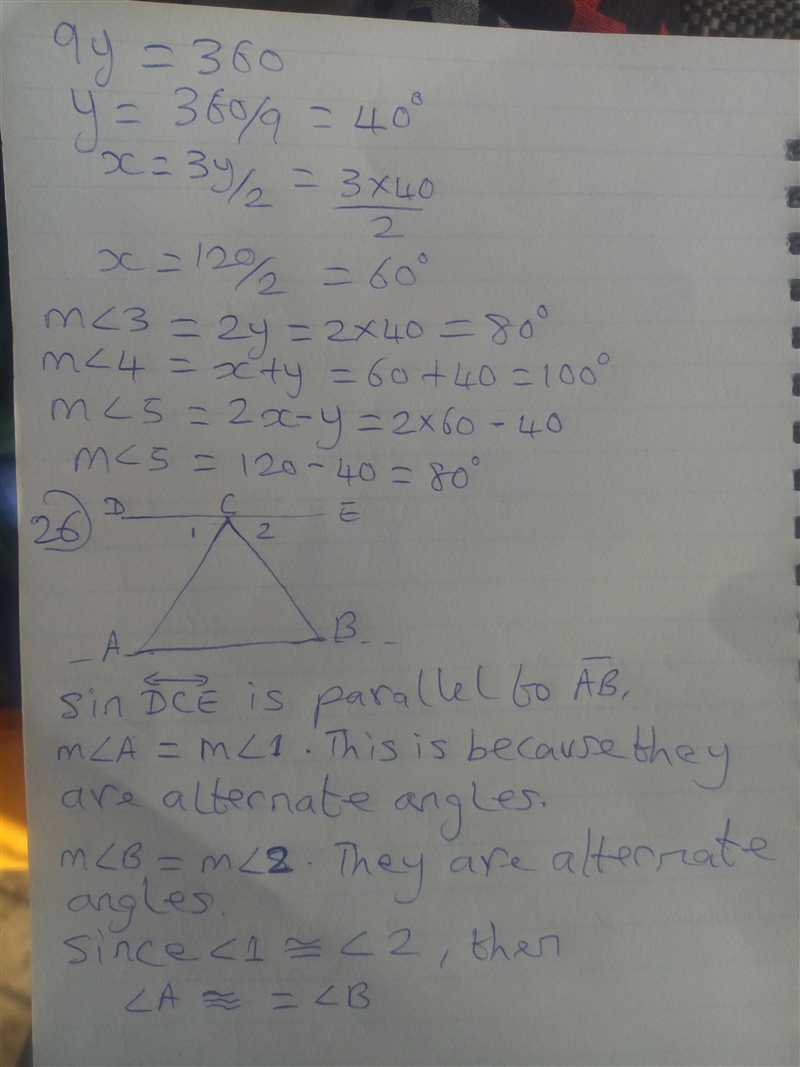 9y = 360
y = 360/9 = 40°
x = 3y/2 = 3×40/2
x = 120/2 = 60°
m∠3 = 2y = 2×40 = 80°
m∠4 = x+y = 60+40 = 100°
m∠5 = 2x-y = 2×60 - 40
m∠5 = 120 - 40 = 80°
26) D C E
1 2
A B
sin DCE is parallel to AB.
m∠A = m∠1. This is because they
are alternate angles.
m∠B = m∠2. They are alternate
angles.
since ∠1 ≅ ∠2, then
∠A ≅ = ∠B